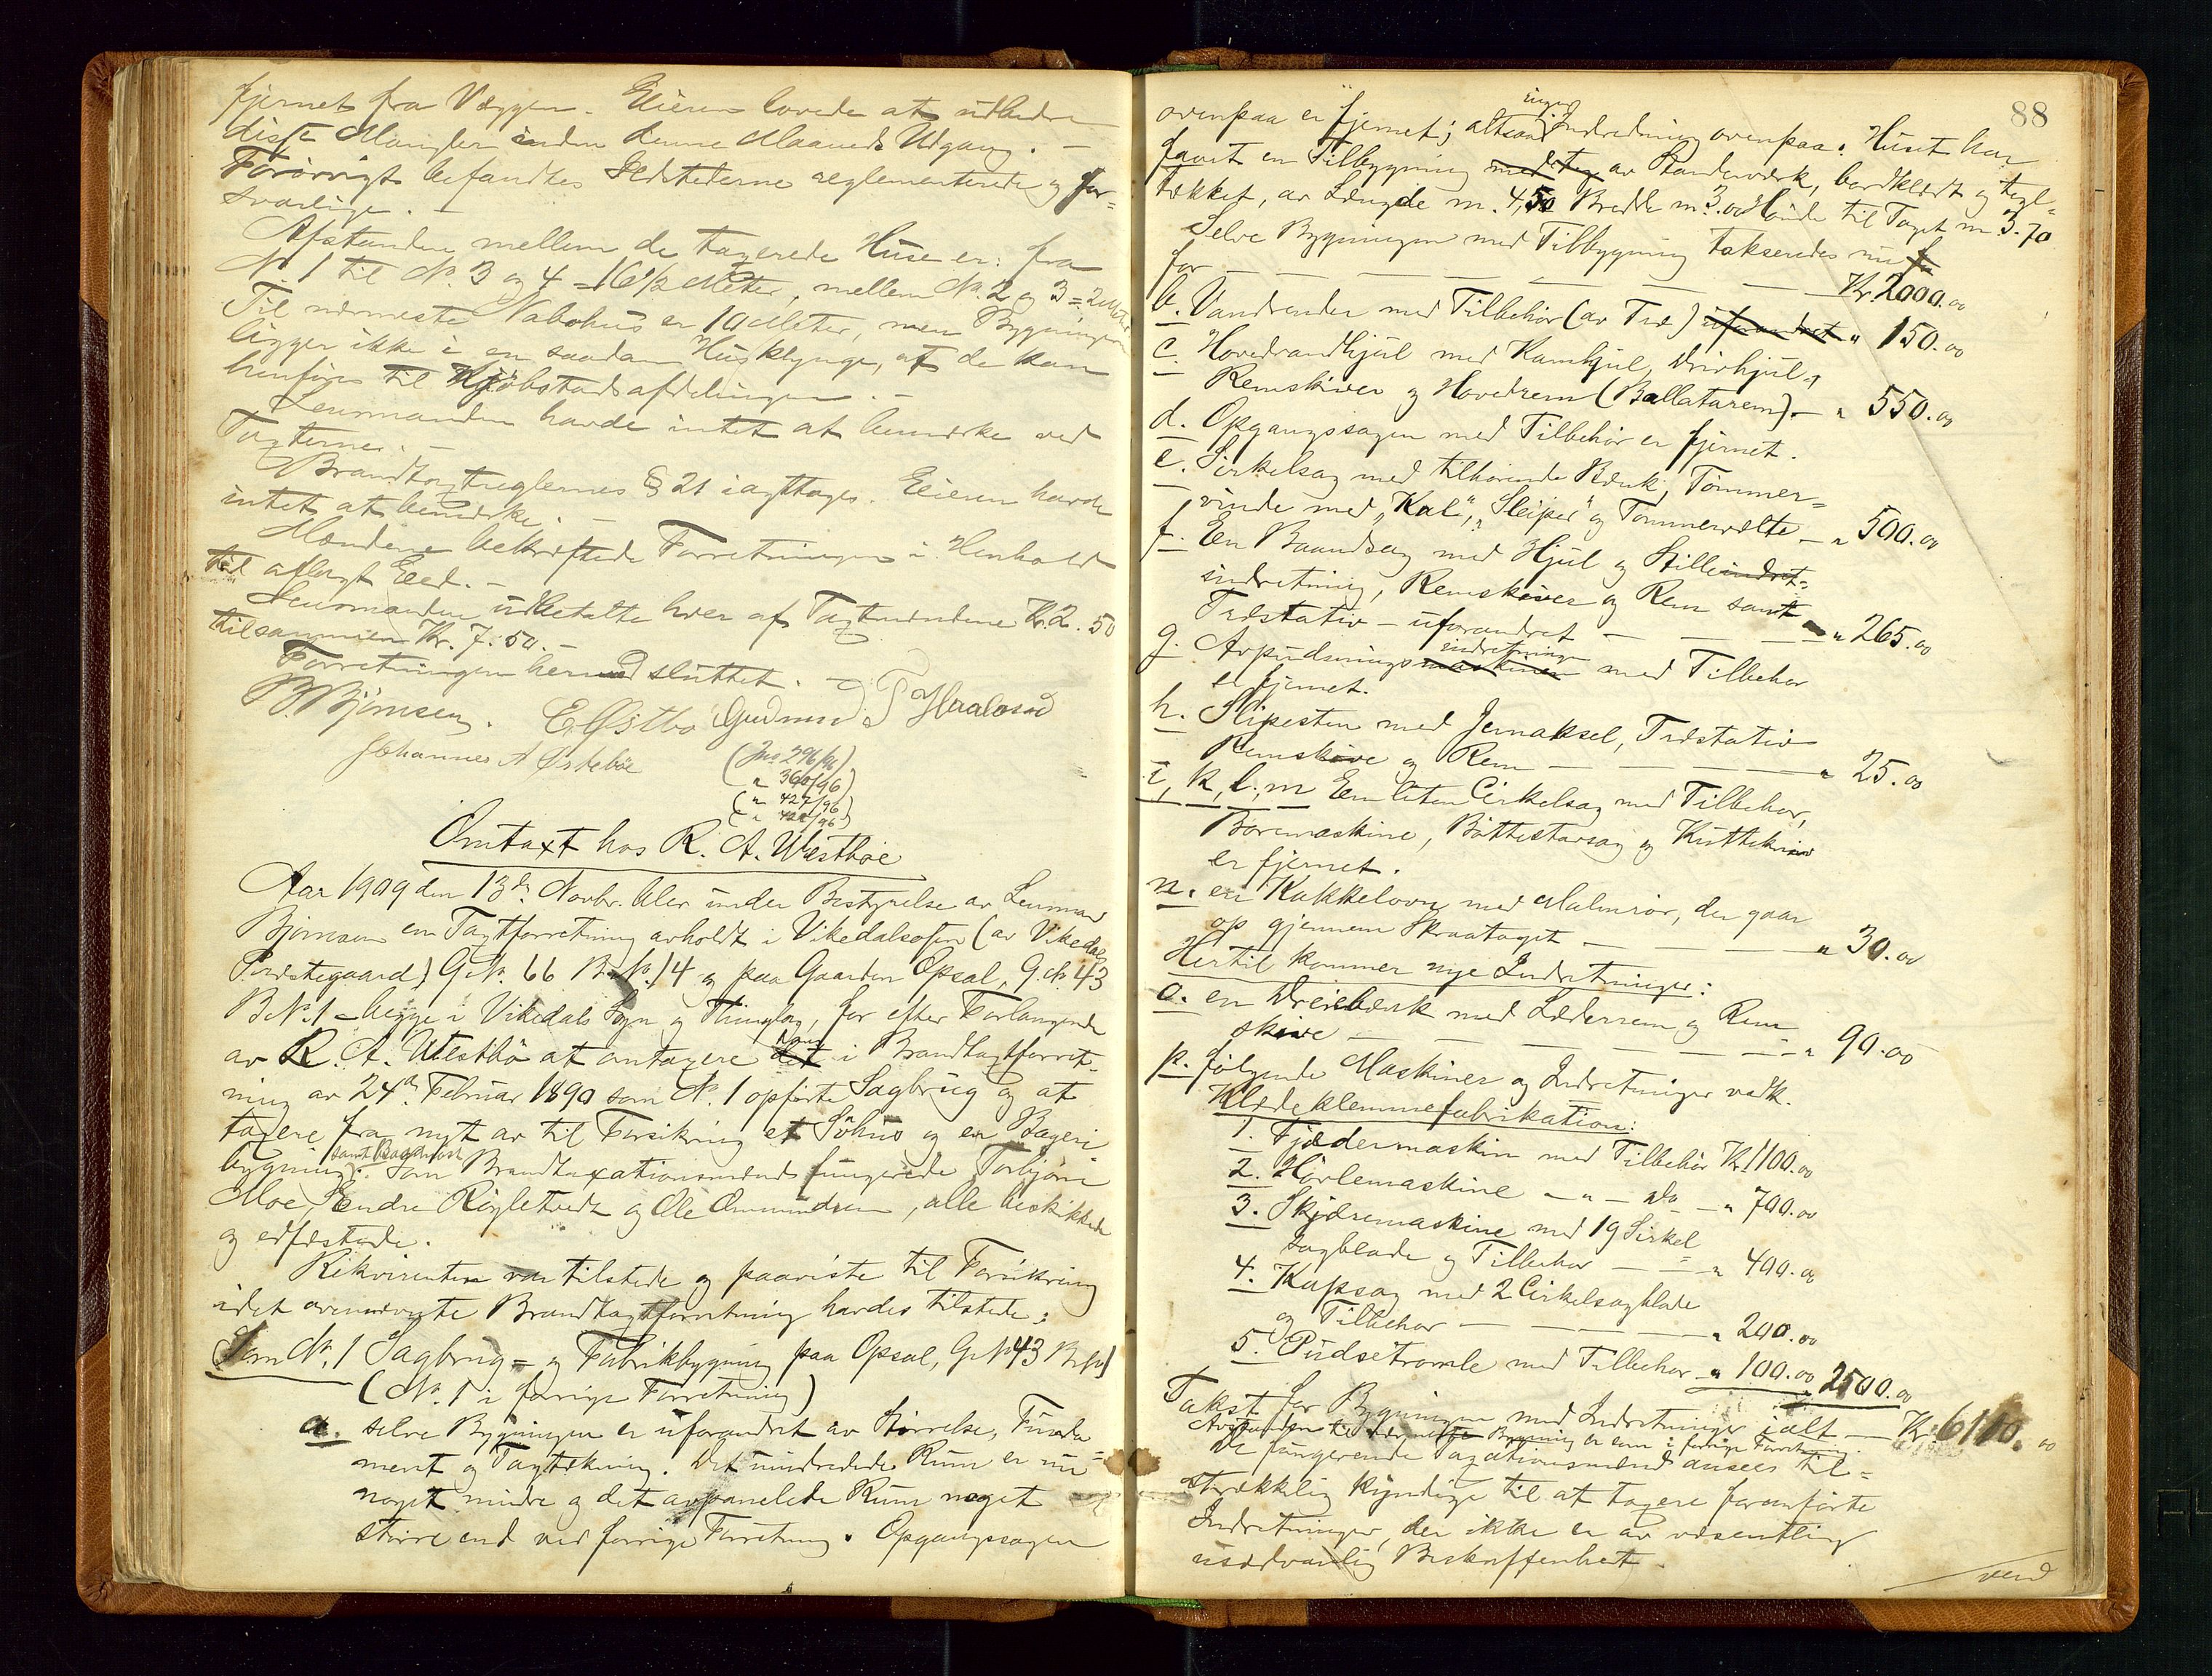 fjernet fra Væggen. Eieren lovede at udbedre
disse Mangler inden denne Maaneds Udgang. —
Forøvrigt befandtes Ildstederne reglementerede og for-
svarlige. —
Afstanden mellem de taxerede Huse er: fra
No 1 til No. 3 og 4 = 16½ Meter, mellem No. 2 og 3 = 2 Meter
Til nærmeste Nabohus er 10 Meter, men Bygningerne
ligger ikke i en saadan Husklynge, at de kan
henføres til Kjøbstadsafdelingen. —
Lensmanden havde intet at bemerke ved
Taxterne. —
Brandtaxtreglernes § 21 iagttages. Eieren havde
intet at bemerke. —
Mændene bekræftede Forretningen i Henhold
til aflagt Eed. —
Lensmanden udbetalte hver af Taxtmændene Kr. 2.50
tilsammen Kr. 7.50. —
Forretningen hermed sluttet. —
B. Bjørnsen. E. Østbø Gudmund T Haaland
Johannes A Østebøe
(Jno 296/96)
(" 360/96)
(" 427/96)
(" 428/96)
Omtaxt hos R. A. Westbøe
Aar 1909 den 13de Novbr. blev under Bestyrelse av Lensmand
Bjørnsen en Taxtforretning avholdt i Vikedalsøsen (av Vikedal
Præstegaard) G.No. 66 B.No. 14 og paa Gaarden Opsal, G.No. 43
B.No. 1 — begge i Vikedals Sogn og Thinglag, for efter Forlangende
av R. A. Westbø at omtaxere hans det i Brandtaxtforret-
ning av 24de Februar 1890 som No. 1 opførte Sagbrug og at
taxere fra nyt av til Forsikring et Søhus og en Bageri
bygning samt Bagerovn. Som Brandtaxationsmænd fungerede Torbjørn
Moe, Endre Røgletvedt og Ole Ommundsen, alle beskikkede
og edfæstede.
Rekvirenten var tilstede og paaviste til Forsikring
idet ovennævnte Brandtaxtforretning havdes tilstede:
Som No. 1 Sagbrug- og Fabrikbygning paa Opsal, G.No 43 B.No 1
(No. 1 i forrige Forretning)
a. selve Bygningen er uforandret av Størrelse, Funda-
ment og Tagtækning. Det uindredede Rum er nu
noget mindre og det avpanelede Rum noget
større end ved forrige Forretning. Opgangssagen
88
ovenpaa er fjernet; altsaa ingen Indredning ovenpaa. Huset har
faaet en Tilbygning av Bandeværk, bordklædt og tegl-
tækket, av Længde m. 4,50 Bredde m. 3.00 Høide til Taget m 3.70
Selve Bygningen med Tilbygning takseredes nu
for — — — — — — — Kr. 2000.00
b. Vandrender med Tilbehør (av Træ) uforandret " 150.00
c. Hovedvandhjul med Kamhjul, Drivhjul,
Remskiver og Hovedrem (Ballatarem) — " 550.00
d. Opgangssagen med Tilbehør er fjernet.
e. Sirkelsag med tilhørende Bænk, Tømmer-
vinde med "Kal", "Sleiper" og Tømmervælte — " 500.00
f. En Baandsag med Hjul og Stilleindret-
indretning, Remskiver og Rem samt
Træstativ — uforandret — — — " 265.00
g. Avpudsningsmaskinen indretningen med Tilbehør
er fjernet.
h. Slipesten med Jernaksel, Træstativ
Remskive og Rem — — — — " 25.00
i, k, l, m En liten Cirkelsag med Tilbehør,
Boremaskine, Bøttestavsag og Kuttekniv
er fjernet.
n. en Kakkelovn med Malmrør, der gaar
op gjennem Skraataget — — — " 30.00
Hertil kommer nye Indretninger:
o. en Dreiebænk med Læderrem og Rem
skive — — — — — — " 90.00
p. følgende Maskiner og Indretninger vedk.
Klædeklemmefabrikation:
1. Fjædermaskin med Tilbehør Kr. 1100.00
2. Høvlemaskine — " — do — " 700.00
3. Skjæremaskine med 19 Sirkel
sagblade og Tilbehør — — " 400.00
4. Kapsag med 2 Cirkelsagblade
og Tilbehør — — — — " 200.00
5. Pudsetromle med Tilbehør " 100.00 " 2500.00
Takst for Bygningen med Indretninger ialt — Kr. 6110.00
Avstanden til nærmeste Bygning er som i forrige Forretning.
De fungerende Taxationsmænd ansees til-
strækkelig kyndige til at taxere foranførte
Indretninger, der ikke er av væsentlig
usædvanlig Beskaffenhet.
vend